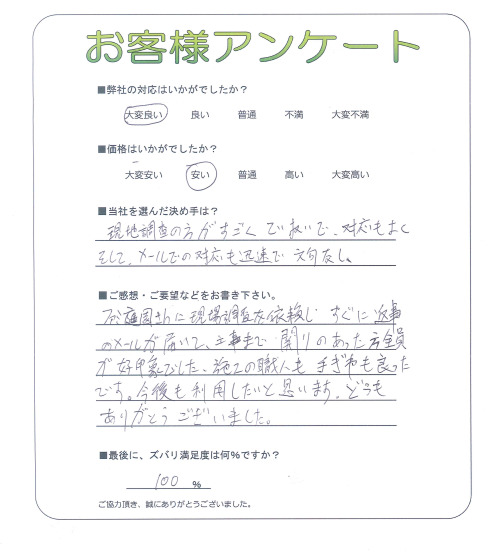 お客様アンケート
■弊社の対応はいかがでしたか？
大変良い 良い 普通 不満 大変不満
■価格はいかがでしたか？
大変安い 安い 普通 高い 大変高い
■当社を選んだ決め手は？
現地調査の方がすごくていねいで、対応もよく
そして、メールでの対応も迅速で文句なし。
■ご感想・ご要望などをお書き下さい。
庭園さんに現場調査を依頼し すぐに返事
のメールが届いて、工事まで関りのあった方全員
が好印象でした、施工の職人も手ぎわも良った
です。今後も利用したいと思います。どうも
ありがとうございました。
■最後に、ズバリ満足度は何%ですか？
100 %
ご協力頂き、誠にありがとうございました。